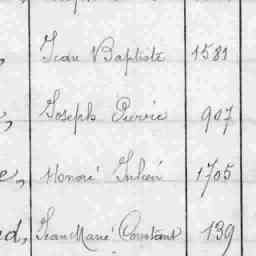 , Jean Baptiste 1581
, Joseph Pierre 907
e, Honoré Julien 1705
d, Jean Marie Constant 139